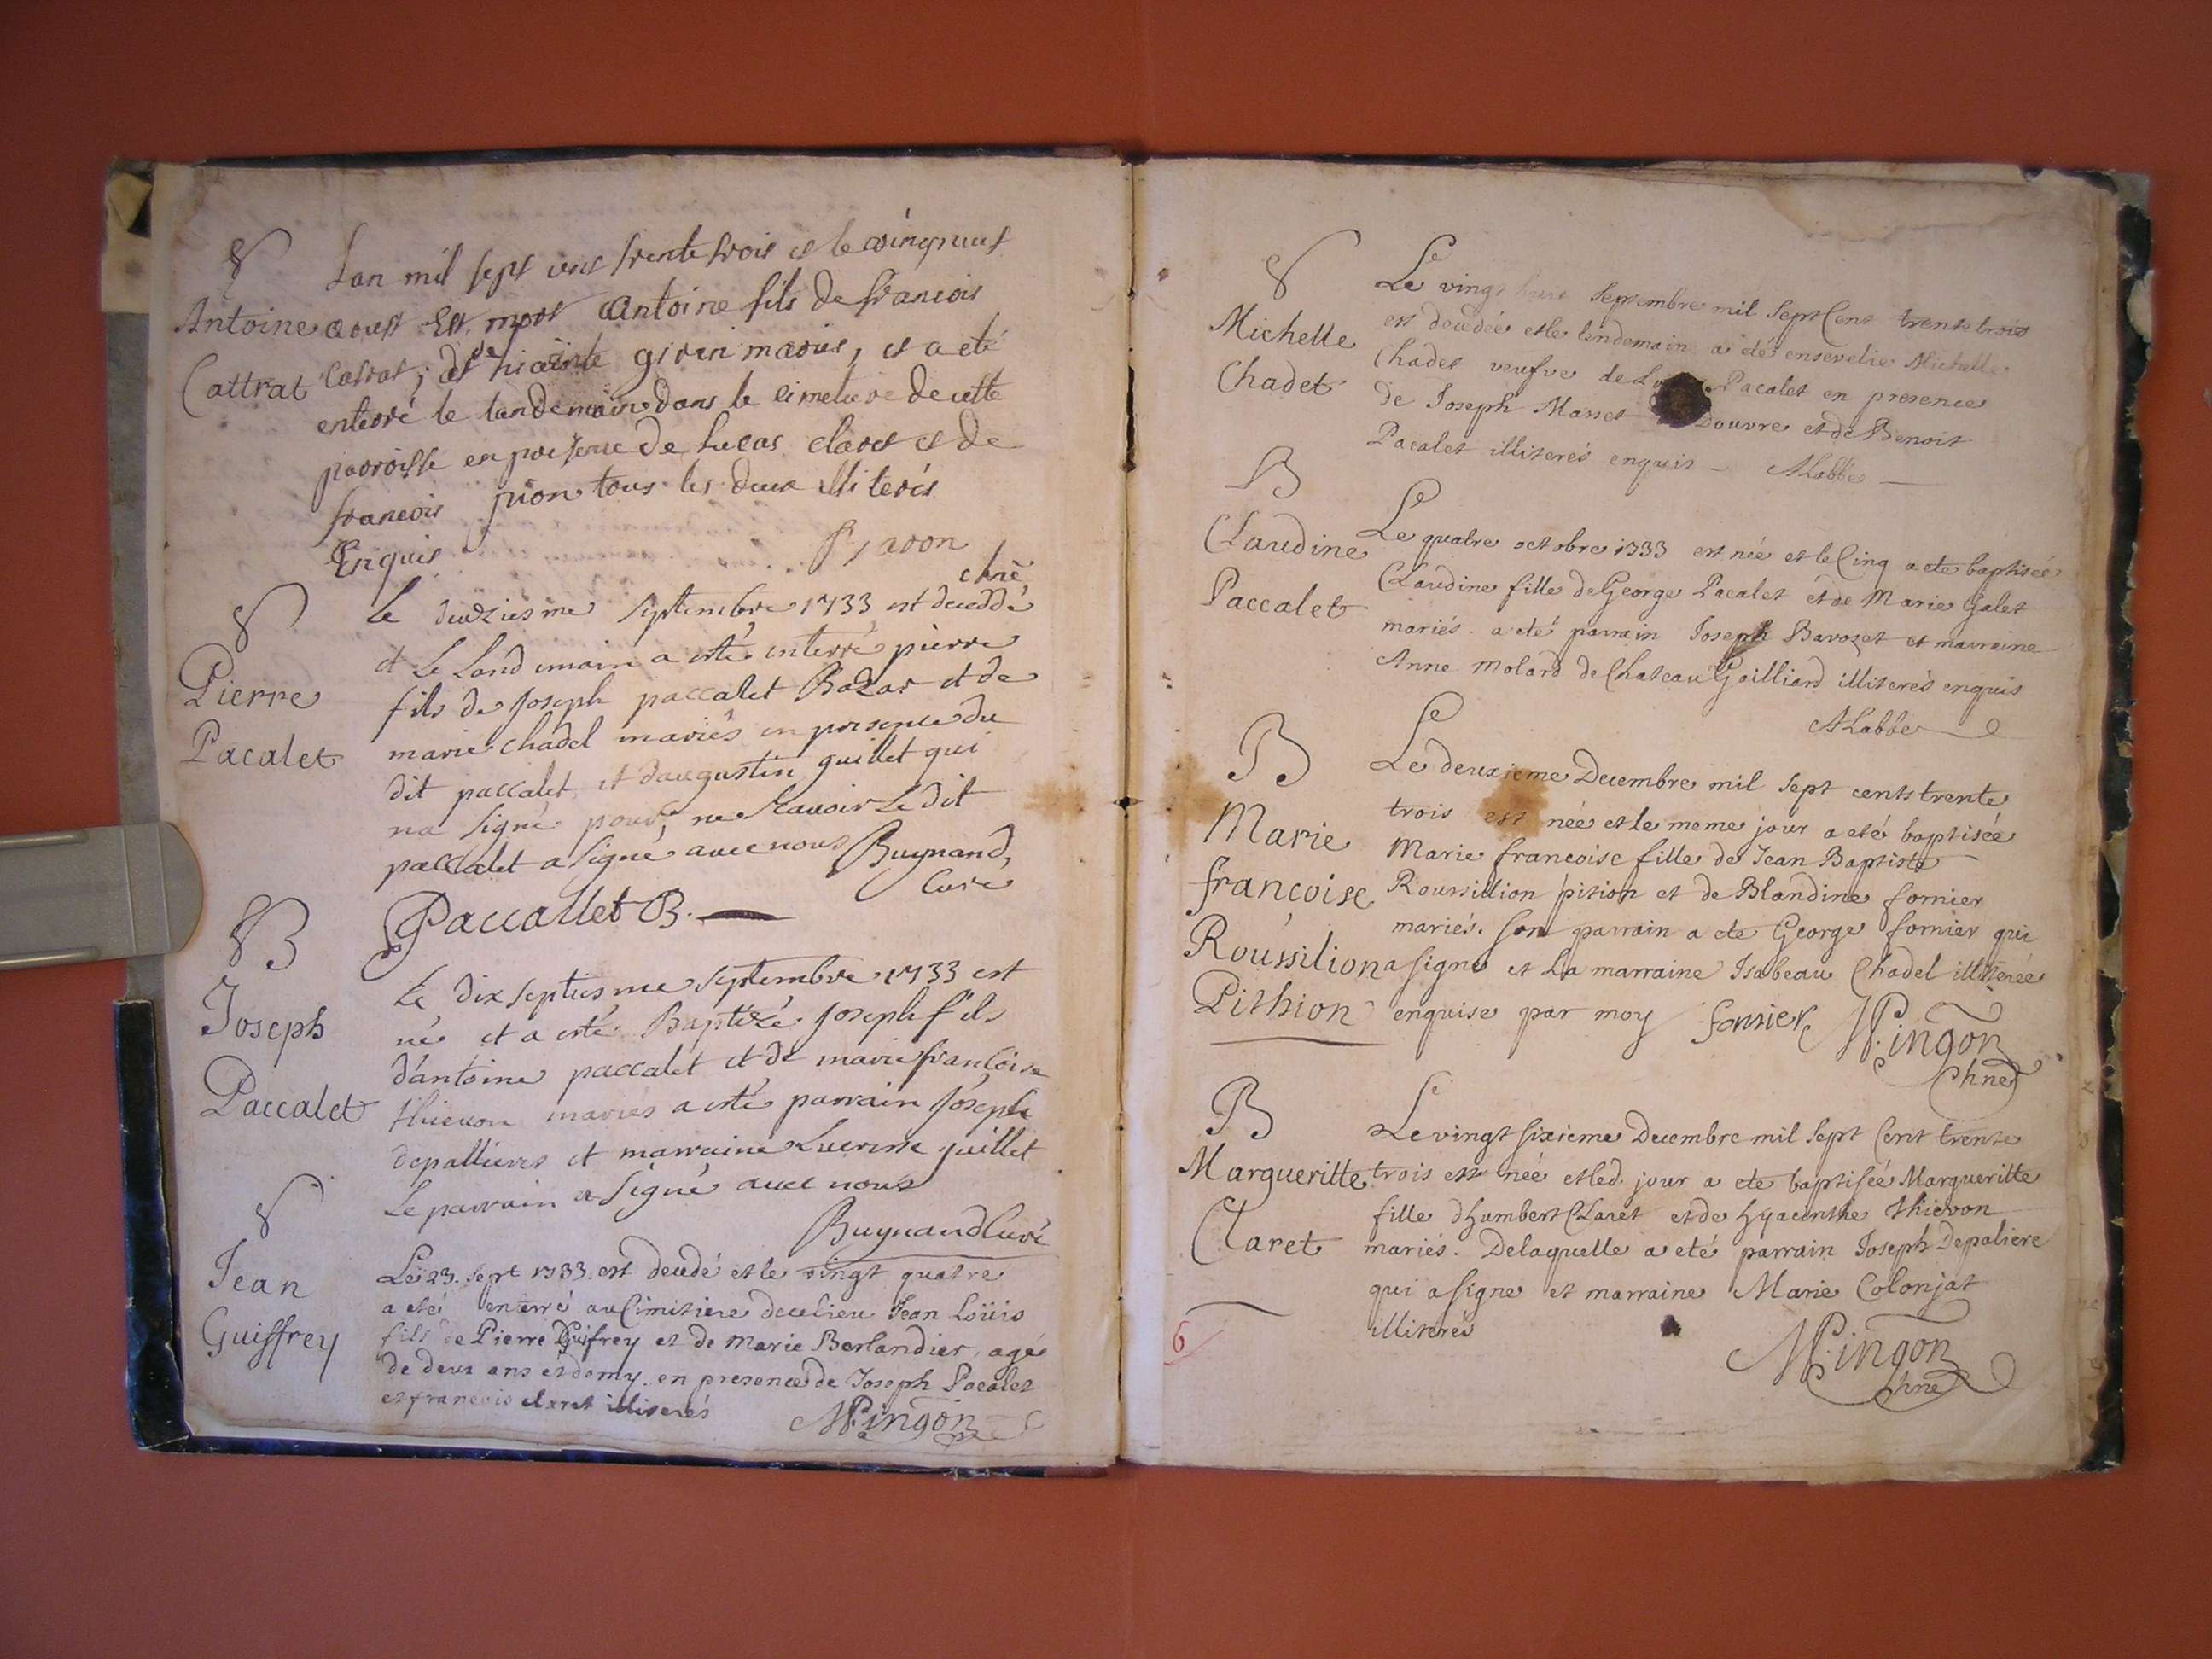 S
Antoine
Cattrat
Lan mil sept cens trente trois et le vingneuf
aoust Est mort Antoine fils de francois
Catrat, et de hiacinte givon mariés, et a eté
enterré le landemain dans le cimetiere de cette
parroisse en presence de Lucas claret et de
francois pion tous les deux illiterés
Enquis
chne
S
Pierre
Pacalet
Le deuziesme septembre 1733 est deceddé
et Le Landemain a esté enterré pierre
fils de Joseph paccalet Bazar et de
marie chadel mariés en presence du
dit paccalet et daugustin guillet qui
na signé pour ne scavoir Le dit
paccalet a signé avec nous Buynand,
Curé
Paccallet B.
B
Joseph
Paccalet
Le dix septiesme septembre 1733 est
né et a esté Baptizé Joseph fils
d'antoine paccalet et de marie francoise
thievon mariés a esté parrain Joseph
depallieres et marraine Lucresse guillet
Le parrain a signé avec nous
Buynand Curé
S
Jean
Guiffrey
Le 23. sept 1733. est decedé et le vingt quatre
a eté enterré au Cimitiere de ce lieu Jean Loüis
fils de Pierre Guifrey et de Marie Berlandier, agé
de deux ans et demy. en presence de Joseph Pacalet
et francois claret illiterés
MPingon
S
Michelle
Chadet
Le vingt huit Septembre mil Sept Cent trente trois
est decedée et le lendemain a eté ensevelie Michelle
Chadet veufve de Pacalet en presence
de Joseph Masset Douvre et de Benoit
Pacalet illiterés enquis - ALabbe
B
Claudine
Paccalet
Le quatre octobre 1733 est née et le Cinq a ete baptisée
Claudine fille de George Pacalet et de Marie Galet
mariés. a eté parrain Joseph Bavozet et marraine
Anne Molard de Chateau Gailliard illiterés enquis
ALabbe
B
Marie
françoise
Roussilion
Pithion
Le deuxieme Decembre mil sept cents trente
trois est née et le meme jour a eté baptisée
Marie francoise fille de Jean Baptiste
Roussillion pition et de Blandine fornier
mariés. son parrain a ete George fornier qui
a signe et La marraine Isabeau Chadel illiterée
enquise par moy fornier MPingon
Chne
B
Margueritte
Claret
Le vingt sixieme Decembre mil sept Cent trente
trois est née et led. jour a ete baptisée Margueritte
fille dhumbert Claret et de hyacinthe thievon
mariés. Delaquelle a eté parrain Joseph Depaliere
qui a signe et marraine Marie Colonjat
illiterés
MPingon
Chne
6